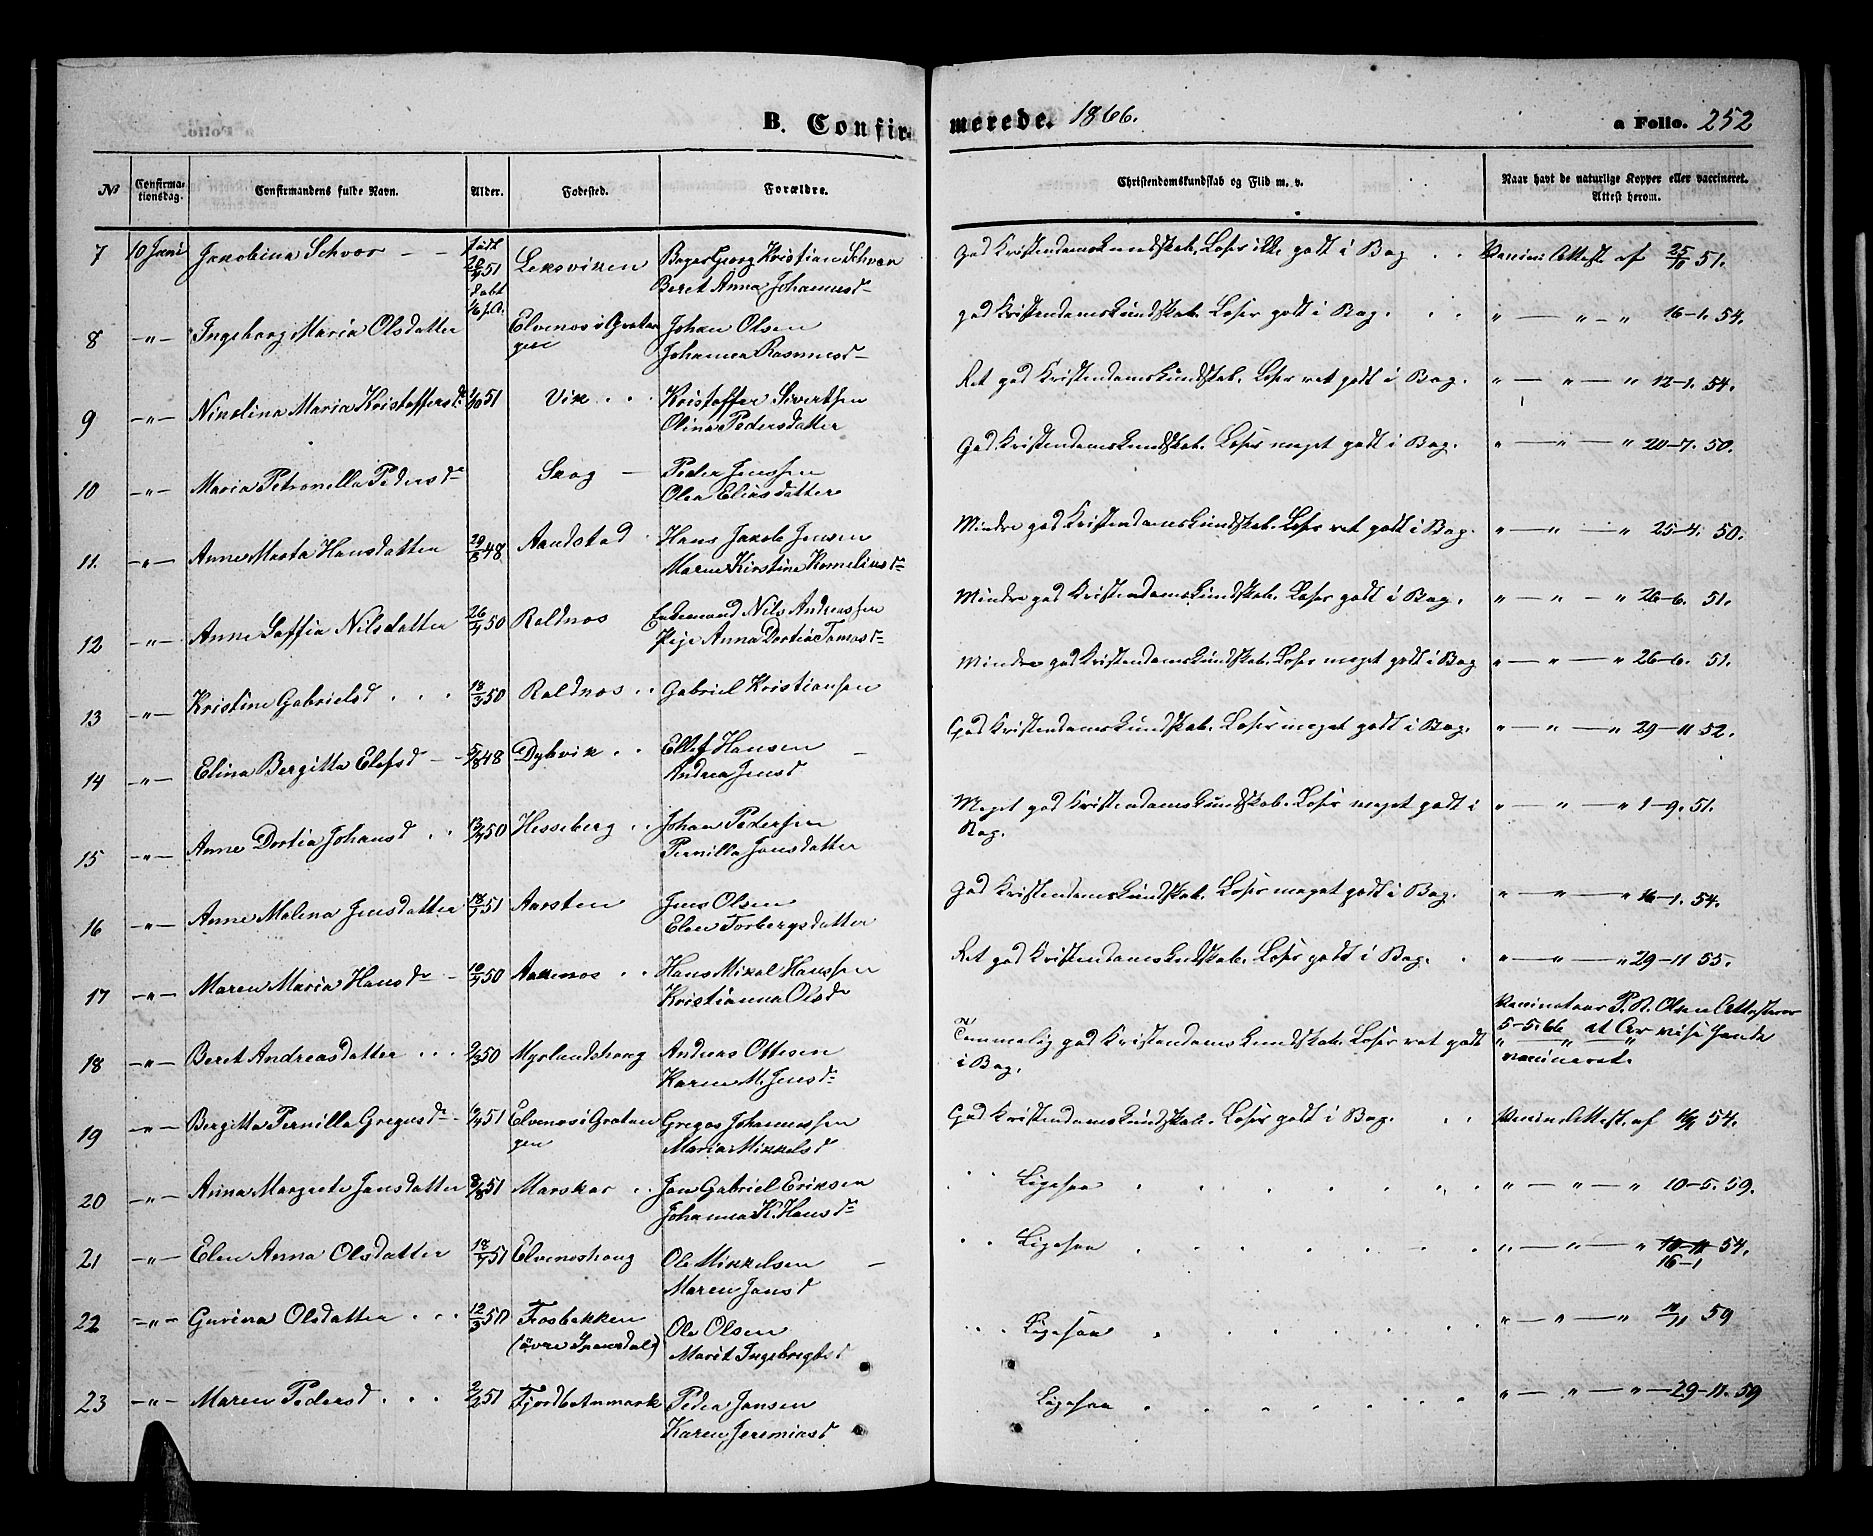 B. Confirmerede. 1866.
a Folio. 252
No
Confirmationsdag.
Confirmandens fulde Navn.
Alder.
Fødested.
Forældre.
Christendomskundskab og Flid m. v.
Naar havt de naturlige Kopper eller vaccineret. Attest herom.
7 10 Juni Jakobina Schvor født 51 døbt Leksviken Georg Kristian Schvor
Beret Anna Johannesd
God Kristendomskundskab. Læser ikke godt i Bog. Vaccine Attest af 51.
8 -"- Ingeborg Maria Olsdatter Elvenes i Gratangen Johan Olsen
Johanna Rasmusd
God Kristendomskundskab. Læser godt i Bog. " — " — " 16-1. 54.
9 -"- Nikolina Maria Kristoffersd 51 Vik Kristoffer Sivertsen
Olina Pedersdatter
Ret god Kristendomskundskab. Læser ret godt i Bog. " — " — " 12-1. 54.
10 -"- Maria Petronella Pedersd Skog Peder Jenssen
Olea Eliasdatter
God Kristendomskundskab. Læser meget godt i Bog. " — " — " 20-7. 50.
11. -"- Anne Marta Hansdatter 29/8 48 Aandstad Hans Jakob Jensen
Maren Kirstine Kornelius d
Mindre god Kristendomskundskab. Læser ret godt i Bog. " — " — " 25-4. 50.
12 -"- Anne Saffia Nilsdatter 50 Roldnos Enkemand Nils Andreassen
Pige Anna Dortia Tomasd
Mindre god Kristendomskundskab. Læser godt i Bog. " — " — " 26-6. 51.
13 -"- Kristine Gabrielsd 18/3 50 Roldnos Gabriel Kristiansen
Mindre god Kristendomskundskab. Læser meget godt i Bog " — " — " 26-6. 51.
14 -"- Elina Bergitta Elefsd 5/8 48 Dybvik Ellef Hansen
Andrea Jensd
God Kristendomskundskab. Læser meget godt i Bog. " — " — " 29-11 52.
15 -"- Anne Dortia Johansd 50 Hesseberg Johan Petersen
Pernilla Jonsdatter
Meget god Kristendomskundskab. Læser meget godt i
Bog. " — " — " 1-9. 51.
16 -"- Anne Malena Jensdatter 51 Aarsten Jens Olsen
Elen Torbergsdatter
God Kristendomskundskab. Læser meget godt i Bog. " — " — " 16-1. 54.
17 -"- Maren Maria Hansd 50 Aakenes Hans Mikal Hanssen
Kristianna Olsd
Ret god Kristendomskundskab. Læser godt i Bog. " — " — " 29-11 55.
18 -"- Beret Andreasdatter 2/3 50 Myrlandshaug Andreas Ottesen
Karen M. Jensd
Temmelig god Kristendomskundskab. Læser ret godt
i Bog.
Vaccinatør P. N. Olsen Attesterer
5-5. 66 at
vaccineret.
19 -"- Bergitta Pernilla Gregusd 51 Elvenes i Gratangen Gregos Johannessen
Maria Mikkelsd
God Kristendomskundskab. Læser godt i Bog. Vaccine Attest af 54.
20 -"- Anna Margrete Jonsdatter 51 Marskar Jon Gabriel Eriksen
Johanna K. Hansd
Ligesaa " — " — " 10-5. 59.
21 -"- Elen Anna Olsdatter 18/7 51 Elveneshaug Ole Mikkelsen
Maren Jonsd
Ligesaa " — " — " 10-11 54.
16-1
22 -"- Gurina Olsdatter 12/3 50 Fosbakken
(övre Spansdal) Ole Olsen
Marit Ingebregtsd
Ligesaa " — " — " 59
23 -"- Maren Pedersd 2/2 51 Fjordbotnmark Peder Jonsen
Karen Jeremiasd
Ligesaa " — " — " 29-11. 59